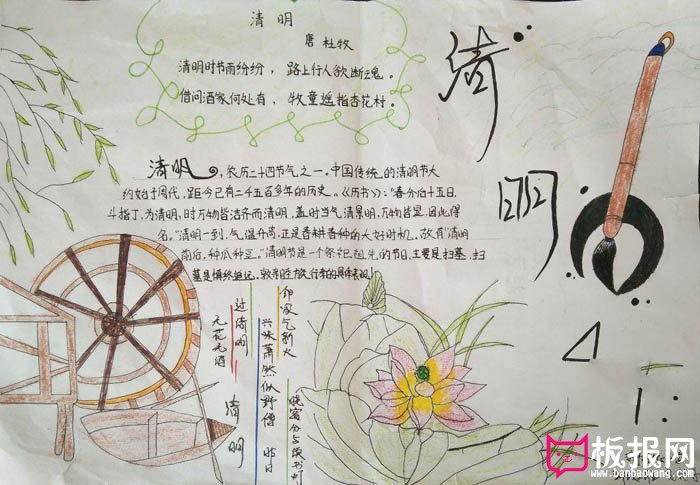 清明
唐 杜牧
清明时节雨纷纷，路上行人欲断魂。
借问酒家何处有，牧童遥指杏花村。
清明，农历二十四节气之一，中国传统的清明节大
约始于周代，距今已有二千五百多年的历史。《历书》："春分后十五日，
斗指丁，为清明，时万物皆洁齐而清明，盖时当气清景明，万物皆显，因此得
名。"清明一到，气温升高，正是春耕春种的大好时机，故有"清明
前后，种瓜种豆。"清明节是一个祭祀祖先的节日，主要是扫墓，扫
墓是慎终追远、
清
明
清
明
无花无酒
过清明
兴味萧然似野僧
昨日
邻家
新火
晓窗分与读书灯
板报网
www.banbaowang.com